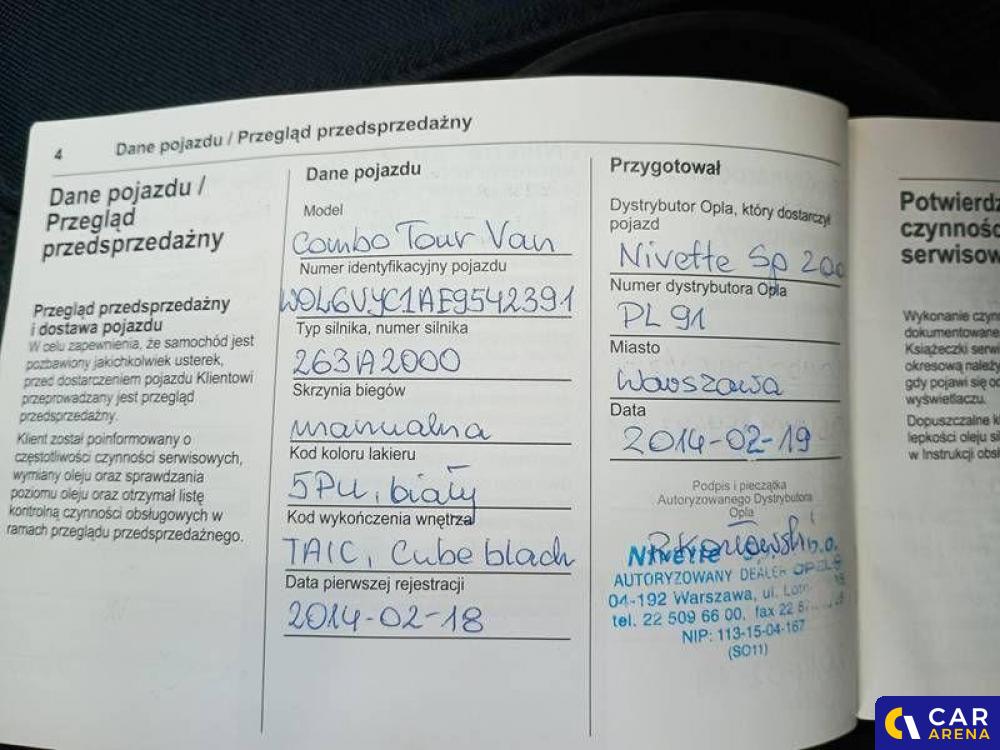 4 Dane pojazdu / Przegląd przedsprzedażny
Dane pojazdu /
Przegląd
przedsprzedażny
Przegląd przedsprzedażny
i dostawa pojazdu
W celu zapewnienia, że samochód jest
pozbawiony jakichkolwiek usterek,
przed dostarczeniem pojazdu Klientowi
przeprowadzany jest przegląd
przedsprzedażny.
Klient został poinformowany o
częstotliwości czynności serwisowych,
wymiany oleju oraz sprawdzania
poziomu oleju oraz otrzymał listę
kontrolną czynności obsługowych w
ramach przeglądu przedsprzedażnego.
Dane pojazdu
Model
Combo Tour Van
Numer identyfikacyjny pojazdu
W0L6VYC1AE9542391
Typ silnika, numer silnika
263A2000
Skrzynia biegów
manualna
Kod koloru lakieru
5PU, biały
Kod wykończenia wnętrza
TAIC, Cube black
Data pierwszej rejestracji
2014-02-18
Przygotował
Dystrybutor Opla, który dostarczył
pojazd
Nivette Sp zoo
Numer dystrybutora Opla
PL 91
Miasto
Warszawa
Data
2014-02-19
Podpis i pieczątka
Autoryzowanego Dystrybutora
Opla
Nivette o.o.
AUTORYZOWANY DEALER OPEL
04-192 Warszawa, ul.
tel. 22 509 66 00, fax 22
NIP: 113-15-04-167
(SO11)
Potwierdz
czynnośc
serwisow
Wykonanie czyn
dokumentowane
Książeczki serwi
okresową należy
gdy pojawi się od
wyświetlaczu.
Dopuszczalne k
lepkości oleju si
w Instrukcji obsł
CAR
ARENA